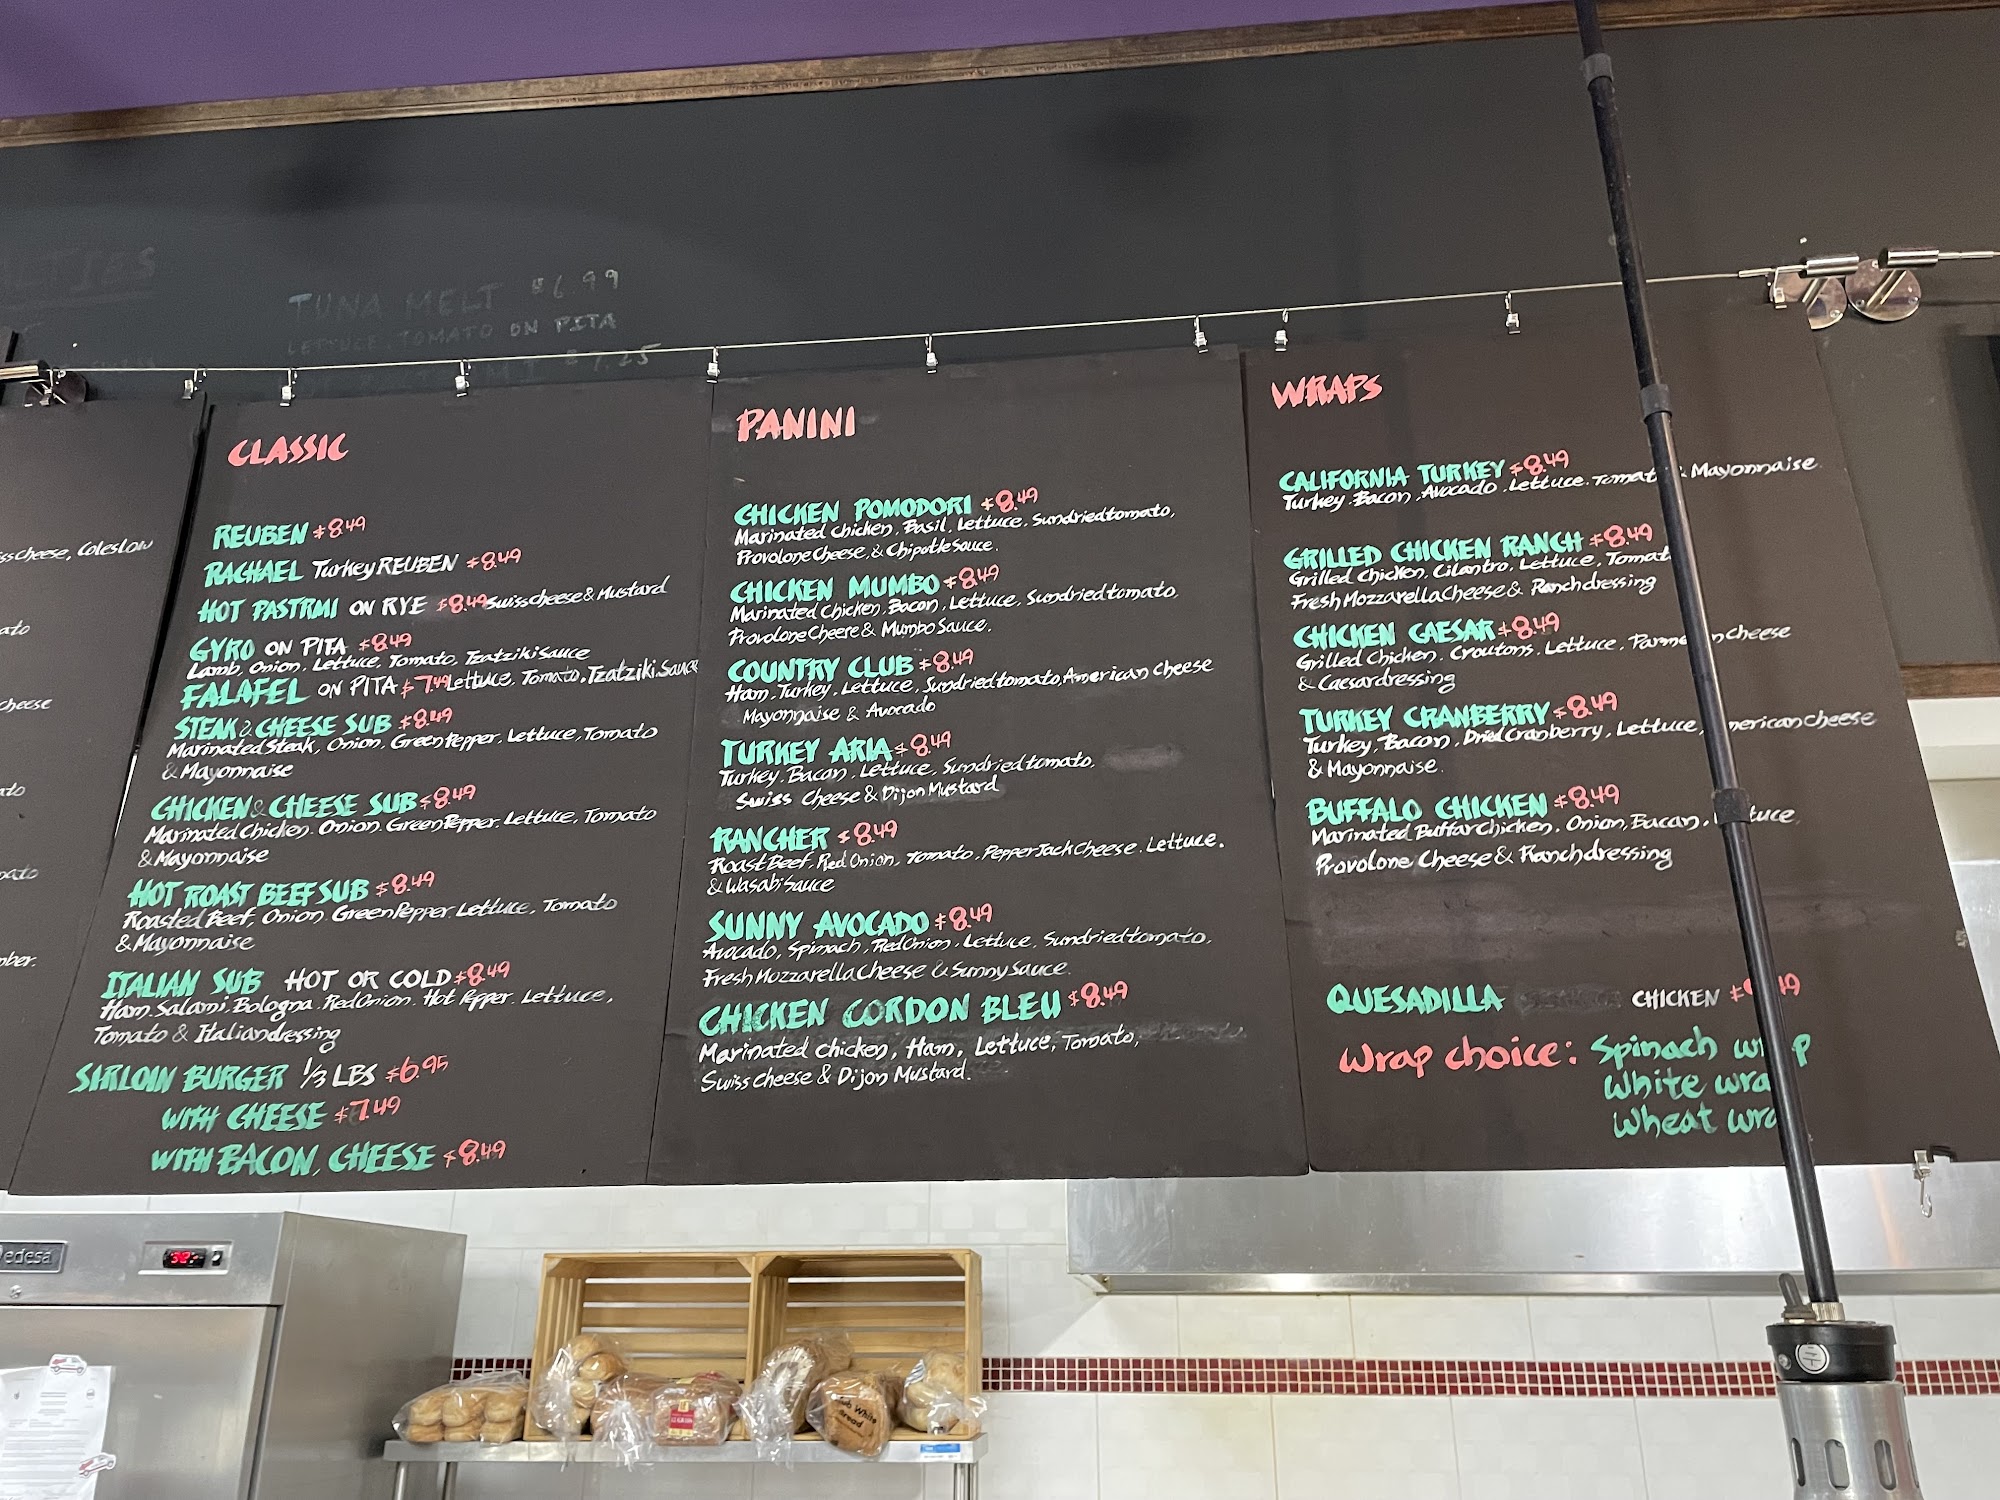 TUNA MELT $6.99
LETTUCE, TOMATO ON PITA
$7.25
Cheese, Coleslaw
cheese
CLASSIC
REUBEN $8.49
RACHAEL Turkey REUBEN $8.49
HOT PASTRMI ON RYE $8.49 Swiss cheese & Mustard
GYRO ON PITA $8.49
Lamb, Onion, Lettuce, Tomato, Tzatziki Sauce
FALAFEL ON PITA $7.49 Lettuce, Tomato, Tzatziki Sauce
STEAK & CHEESE SUB $8.49
Marinated Steak, Onion, Green Pepper, Lettuce, Tomato
& Mayonnaise
CHICKEN & CHEESE SUB $8.49
Marinated Chicken, Onion, Green Pepper, Lettuce, Tomato
& Mayonnaise
HOT ROAST BEEF SUB $8.49
Roasted Beef, Onion, Green Pepper, Lettuce, Tomato
& Mayonnaise
ITALIAN SUB HOT OR COLD $8.49
Ham, Salami, Bologna, Red Onion, Hot Pepper, Lettuce,
Tomato & Italian dressing
SIRLOIN BURGER 1/3 LBS $6.95
WITH CHEESE $7.49
WITH BACON, CHEESE $8.49
PANINI
CHICKEN POMODORI $8.49
Marinated Chicken, Basil, Lettuce, Sundried tomato,
Provolone Cheese, & Chipotle Sauce.
CHICKEN MUMBO $8.49
Marinated Chicken, Bacon, Lettuce, Sundried tomato,
Provolone Cheese & Mumbo Sauce.
COUNTRY CLUB $8.49
Ham, Turkey, Lettuce, Sundried tomato, American cheese
Mayonnaise & Avocado
TURKEY ARIA $8.49
Turkey, Bacon, Lettuce, Sundried tomato,
Swiss Cheese & Dijon Mustard
RANCHER $8.49
Roast Beef, Red Onion, Tomato, Pepper Jack Cheese, Lettuce.
& Wasabi Sauce
SUNNY AVOCADO $8.49
Avocado, Spinach, Red Onion, Lettuce, Sundried tomato,
Fresh Mozzarella Cheese & Sunny Sauce.
CHICKEN CORDON BLEU $8.49
Marinated chicken, Ham, Lettuce, Tomato,
Swiss cheese & Dijon Mustard.
WRAPS
CALIFORNIA TURKEY $8.49
Turkey, Bacon, Avocado, Lettuce, Tomat & Mayonnaise
GRILLED CHICKEN RANCH $8.49
Grilled Chicken, Cilantro, Lettuce, Tomat
Fresh Mozzarella Cheese & Ranch dressing
CHICKEN CAESAR $8.49
Grilled Chicken, Croutons, Lettuce, Parme n cheese
& Caesar dressing
TURKEY CRANBERRY $8.49
Turkey, Bacon, Dried Cranberry, Lettuce, merican cheese
& Mayonnaise.
BUFFALO CHICKEN $8.49
Marinated Buffar Chicken, Onion, Bacan, L tuce,
Provolone Cheese & Ranch dressing
QUESADILLA CHICKEN
Wrap choice: Spinach wrap
White wra
Wheat wra
edesa
White
Bread